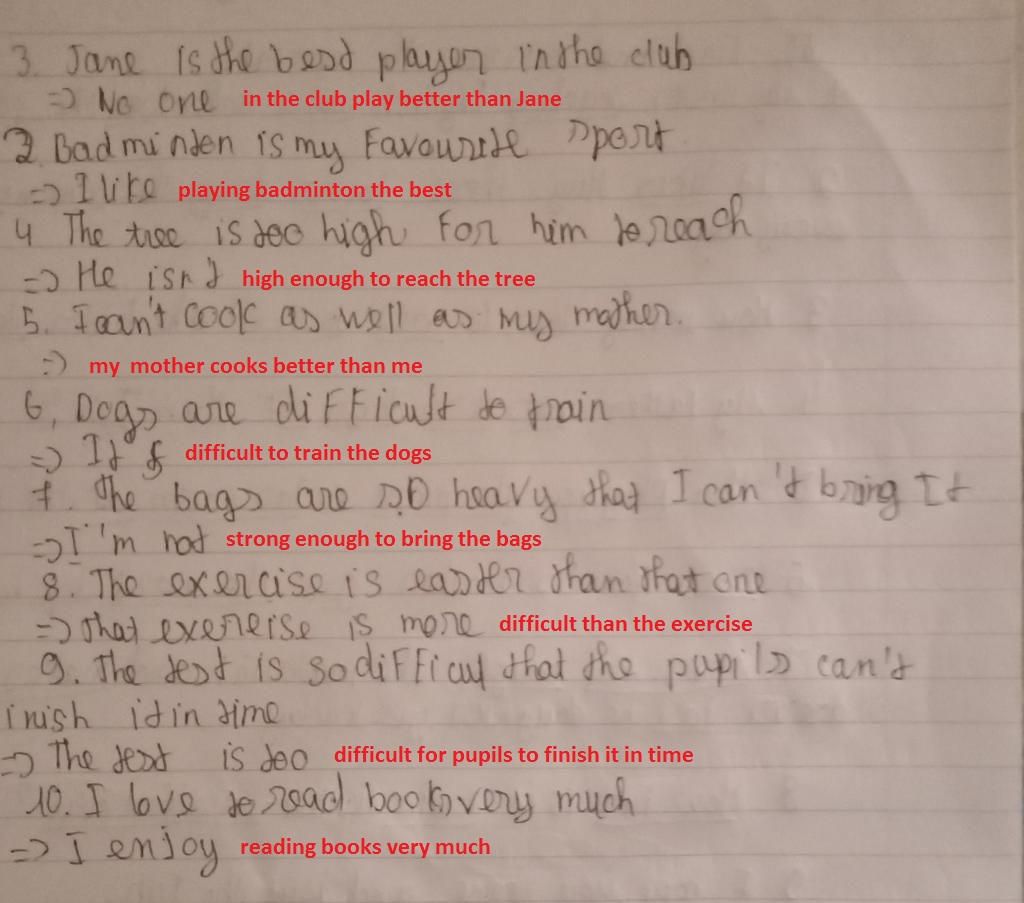 3. Jane is the best player in the club
=> No one in the club play better than Jane
2 Badminten is my Favourite sport
=> I like playing badminton the best
4 The tree is too high For him to reach
=> He isn't high enough to reach the tree
5. I can't cook as well as my mother.
=> my mother cooks better than me
6, Dogs are diFFicult to train
=> It's difficult to train the dogs
7. The bags are so heavy that I can't bring It
=> I'm not strong enough to bring the bags
8. The exercise is easier than that one
=> that exereise is more difficult than the exercise
9. The test is so diFFicut that the pupils can't
inish it in time
=> The test is too difficult for pupils to finish it in time
10. I love to read books very much
=> I enjoy reading books very much